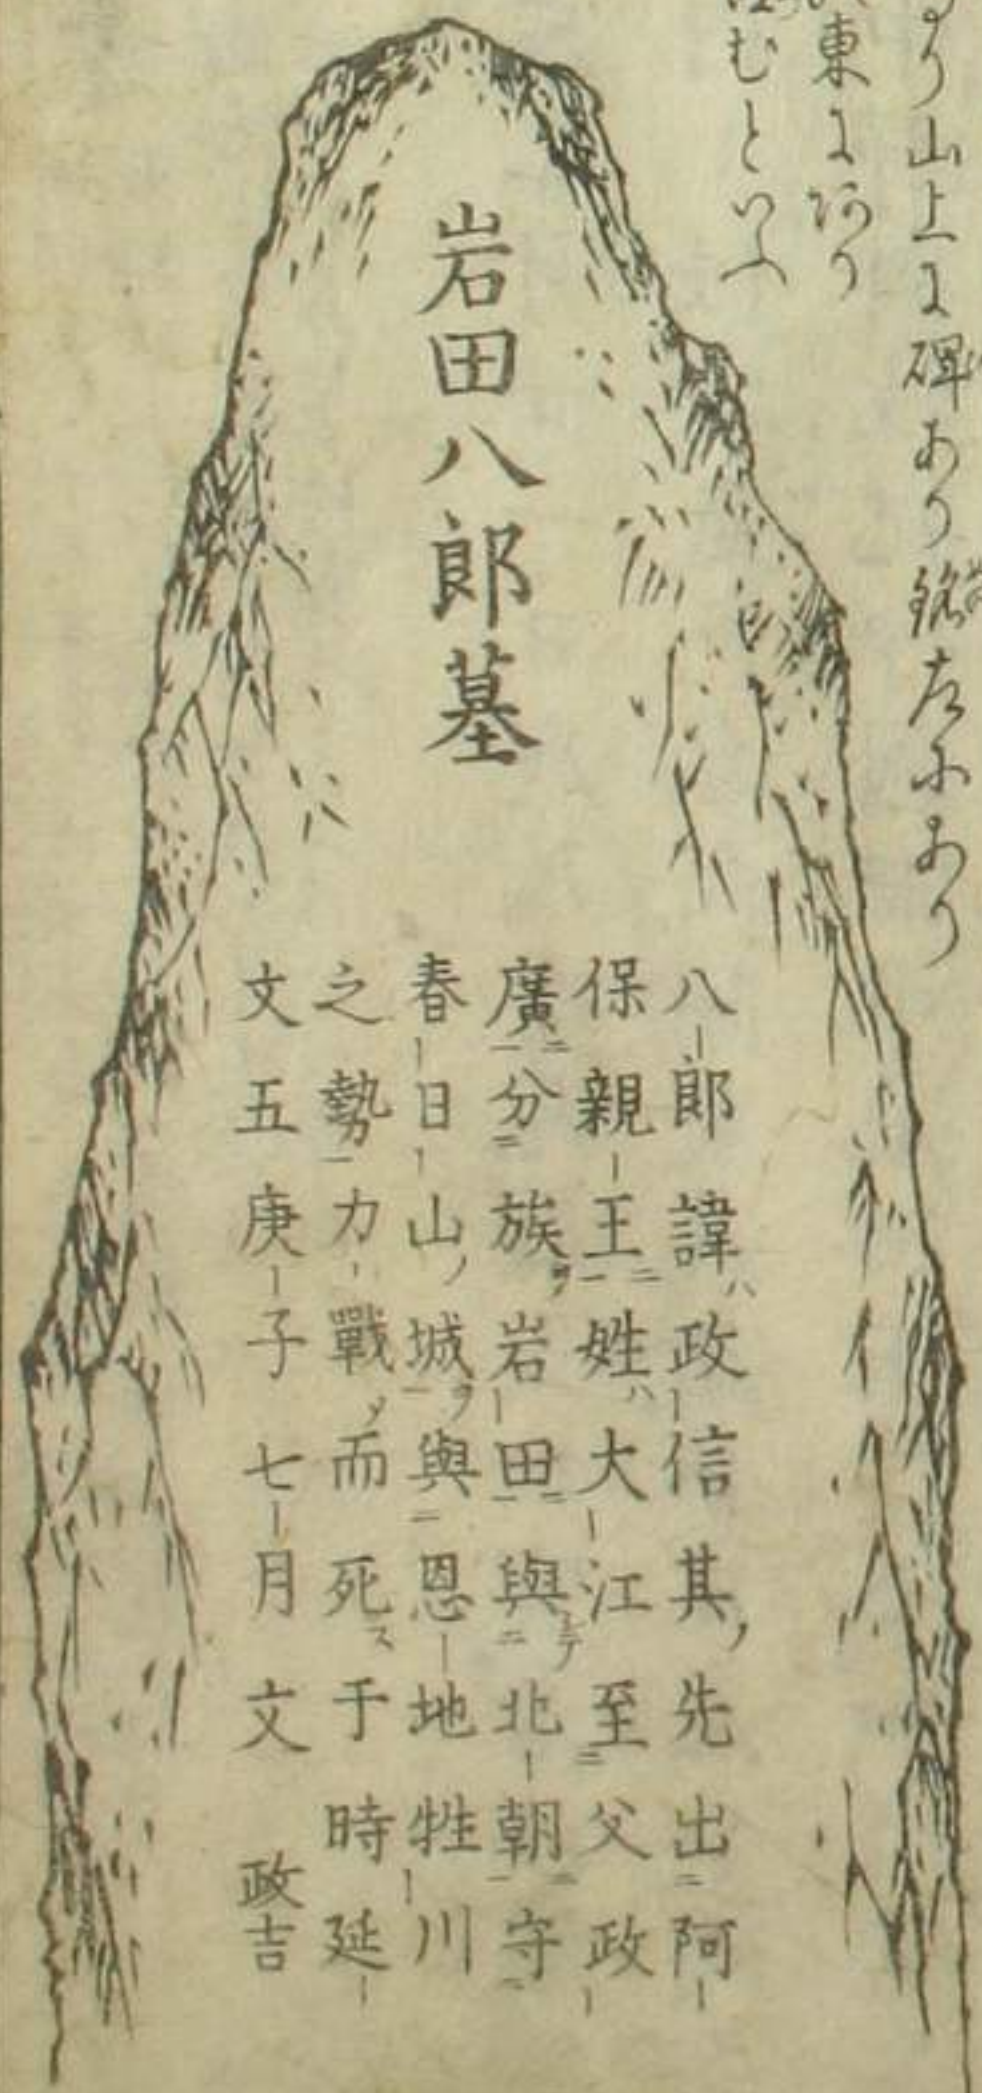 り山上に碑あり銘左にあり
東にあり
むといふ
岩田八郎墓
八郎諱ハ政信其ノ先出阿
保親王姓ハ大江至父政
廣分族岩田與北朝守
春日山ノ城ヲ與恩地牲川
之勢力戰メ而死ス于時延
文五庚子七月文
政吉